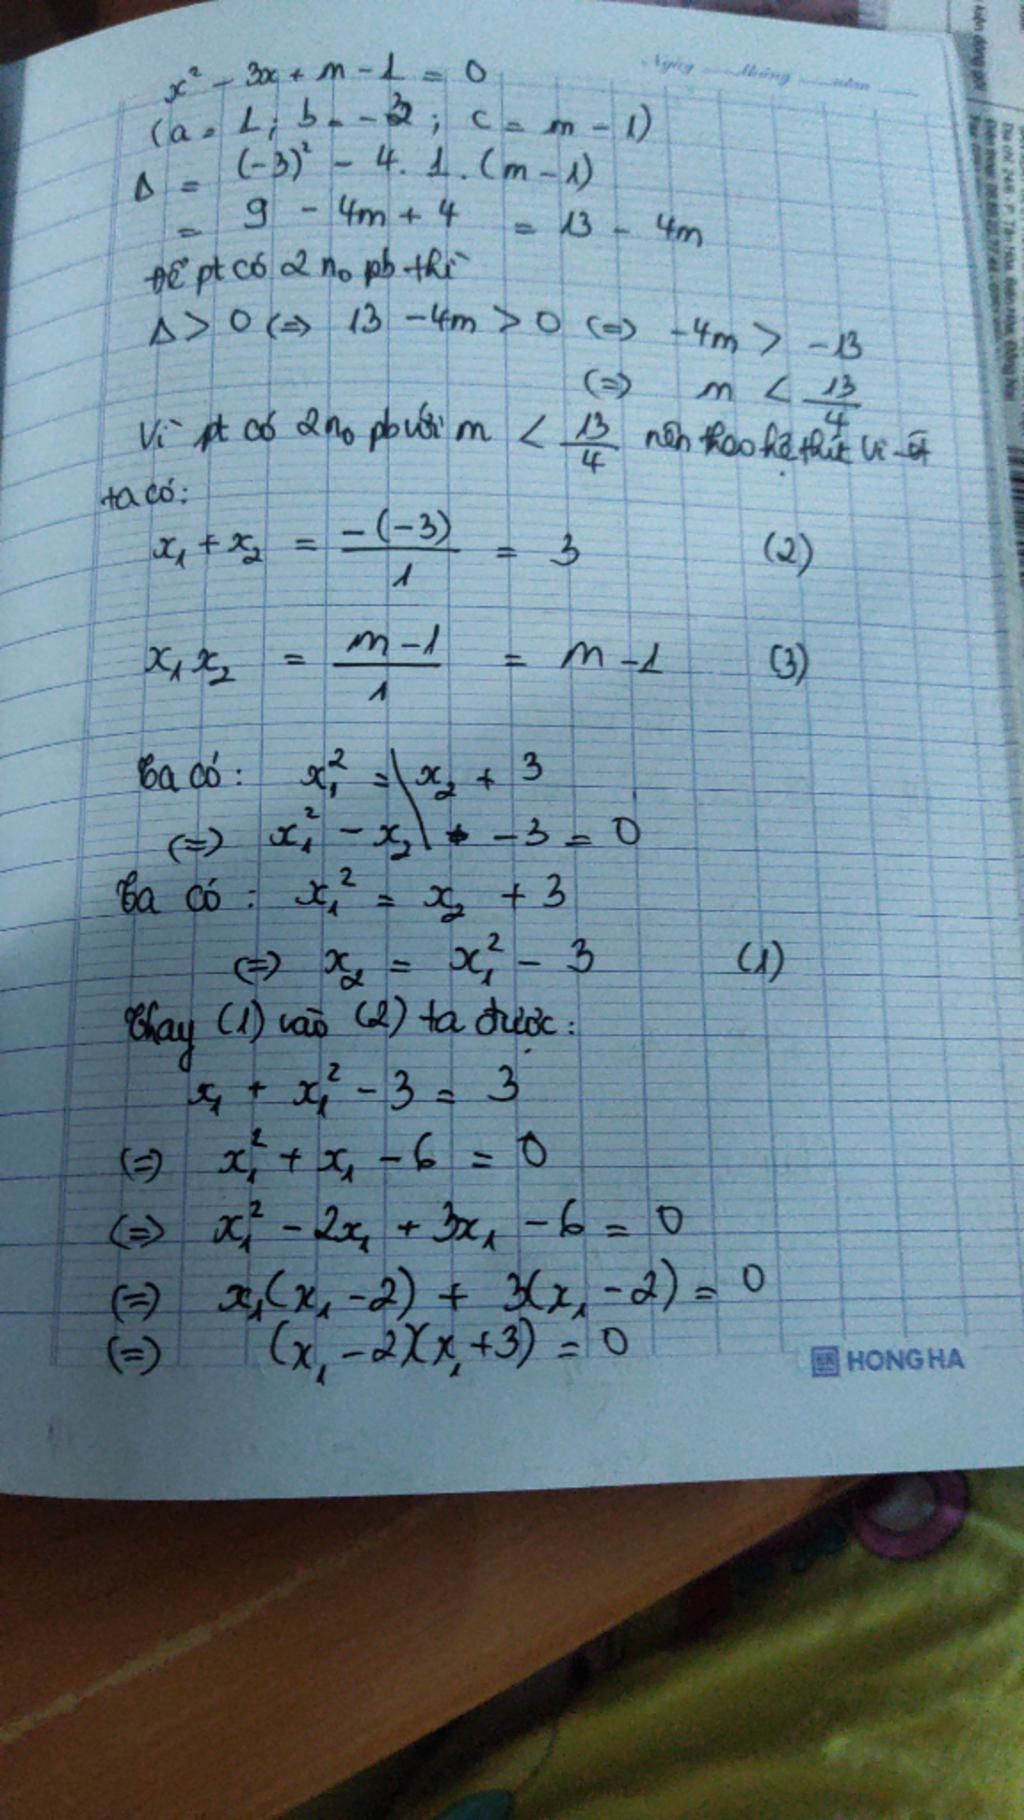 Ngày tháng năm
x² - 3x + m - 1 = 0
(a = 1; b = -3; c = m - 1)
Δ = (-3)² - 4. 1. (m - 1)
= 9 - 4m + 4 = 13 - 4m
Để pt có 2 n₀ pb thì
Δ > 0 (=) 13 - 4m > 0 (=) -4m > -13
(=) m < 13/4
Vì pt có 2 n₀ pb với m < 13/4 nên theo hệ thức Vi-ét
ta có:
x₁ + x₂ = -(-3)/1 = 3 (2)
x₁ x₂ = m-1/1 = m - 1 (3)
Ta có: x₁² = x₂ + 3
(=) x₁² - x₂ - 3 = 0
Ta có: x₁² = x₂ + 3
(=) x₂ = x₁² - 3 (1)
Thay (1) vào (2) ta được:
x₁ + x₁² - 3 = 3
(=) x₁² + x₁ - 6 = 0
(=) x₁² - 2x₁ + 3x₁ - 6 = 0
(=) x₁(x₁ - 2) + 3(x₁ - 2) = 0
(=) (x₁ - 2)(x₁ + 3) = 0
HONG HA